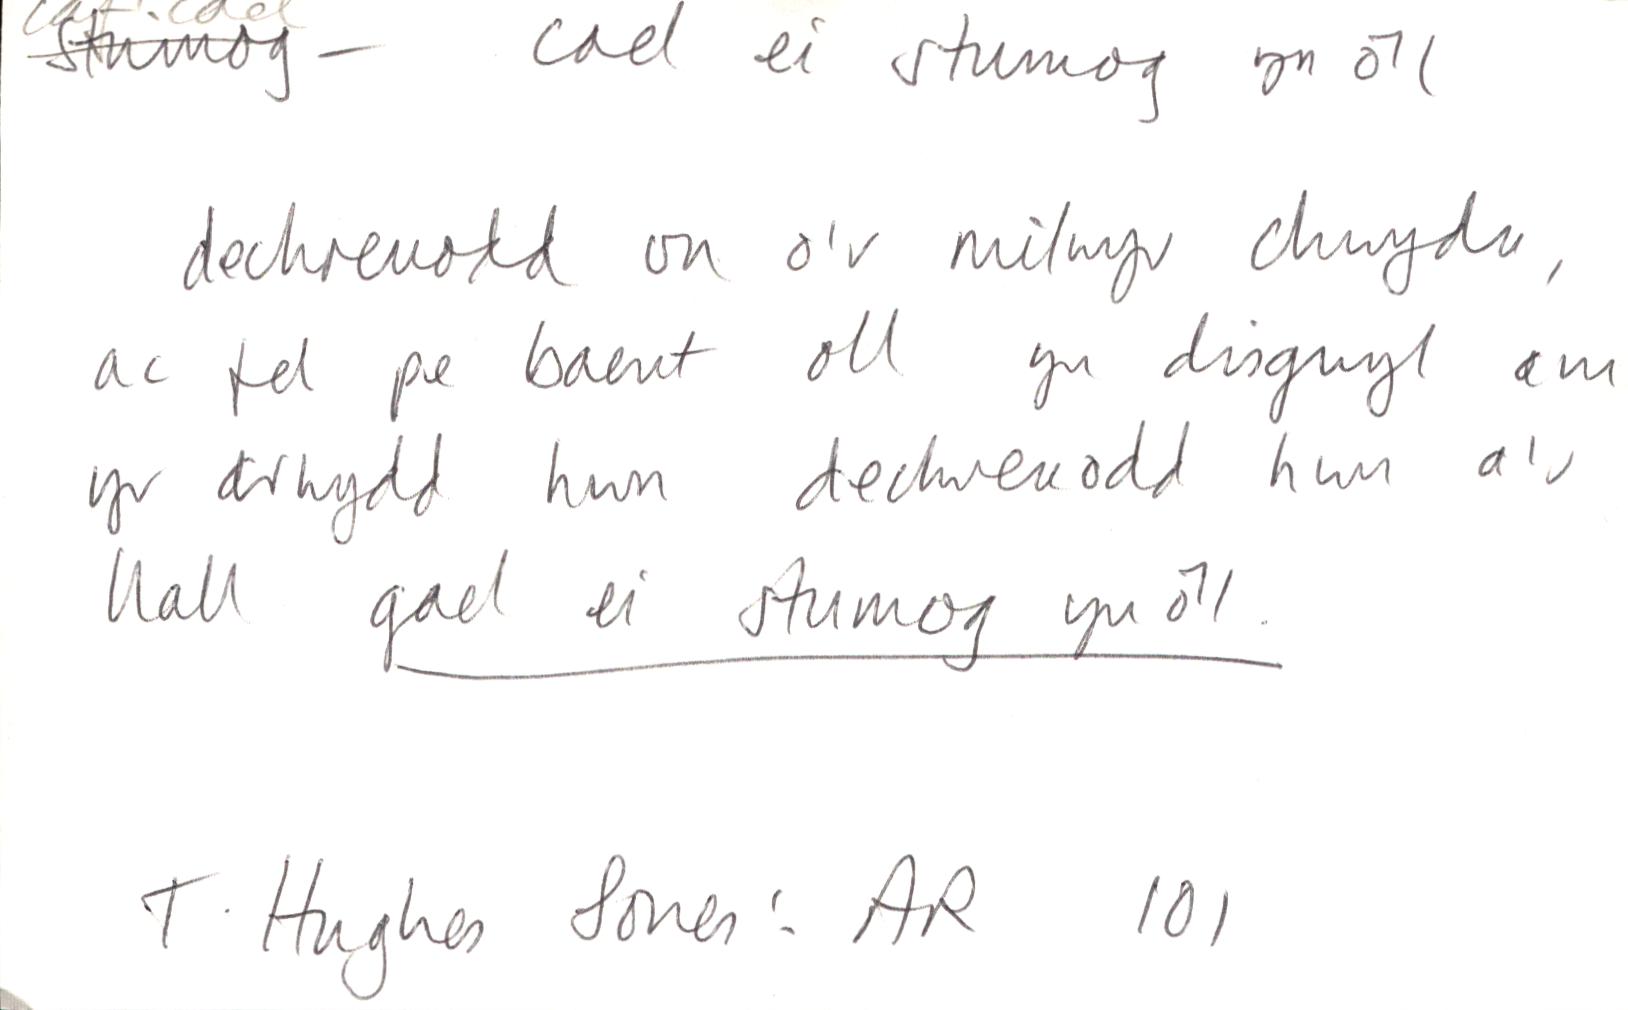 cael
stumog – cael ei stumog yn ôl
dechreuodd un o'r milwyr chwydu,
ac fel pe baent oll yn disgwyl am
yr arwydd hwn dechreuodd hwn a'r
llall gael ei stumog yn ôl.
T. Hughes Jones: AR 101